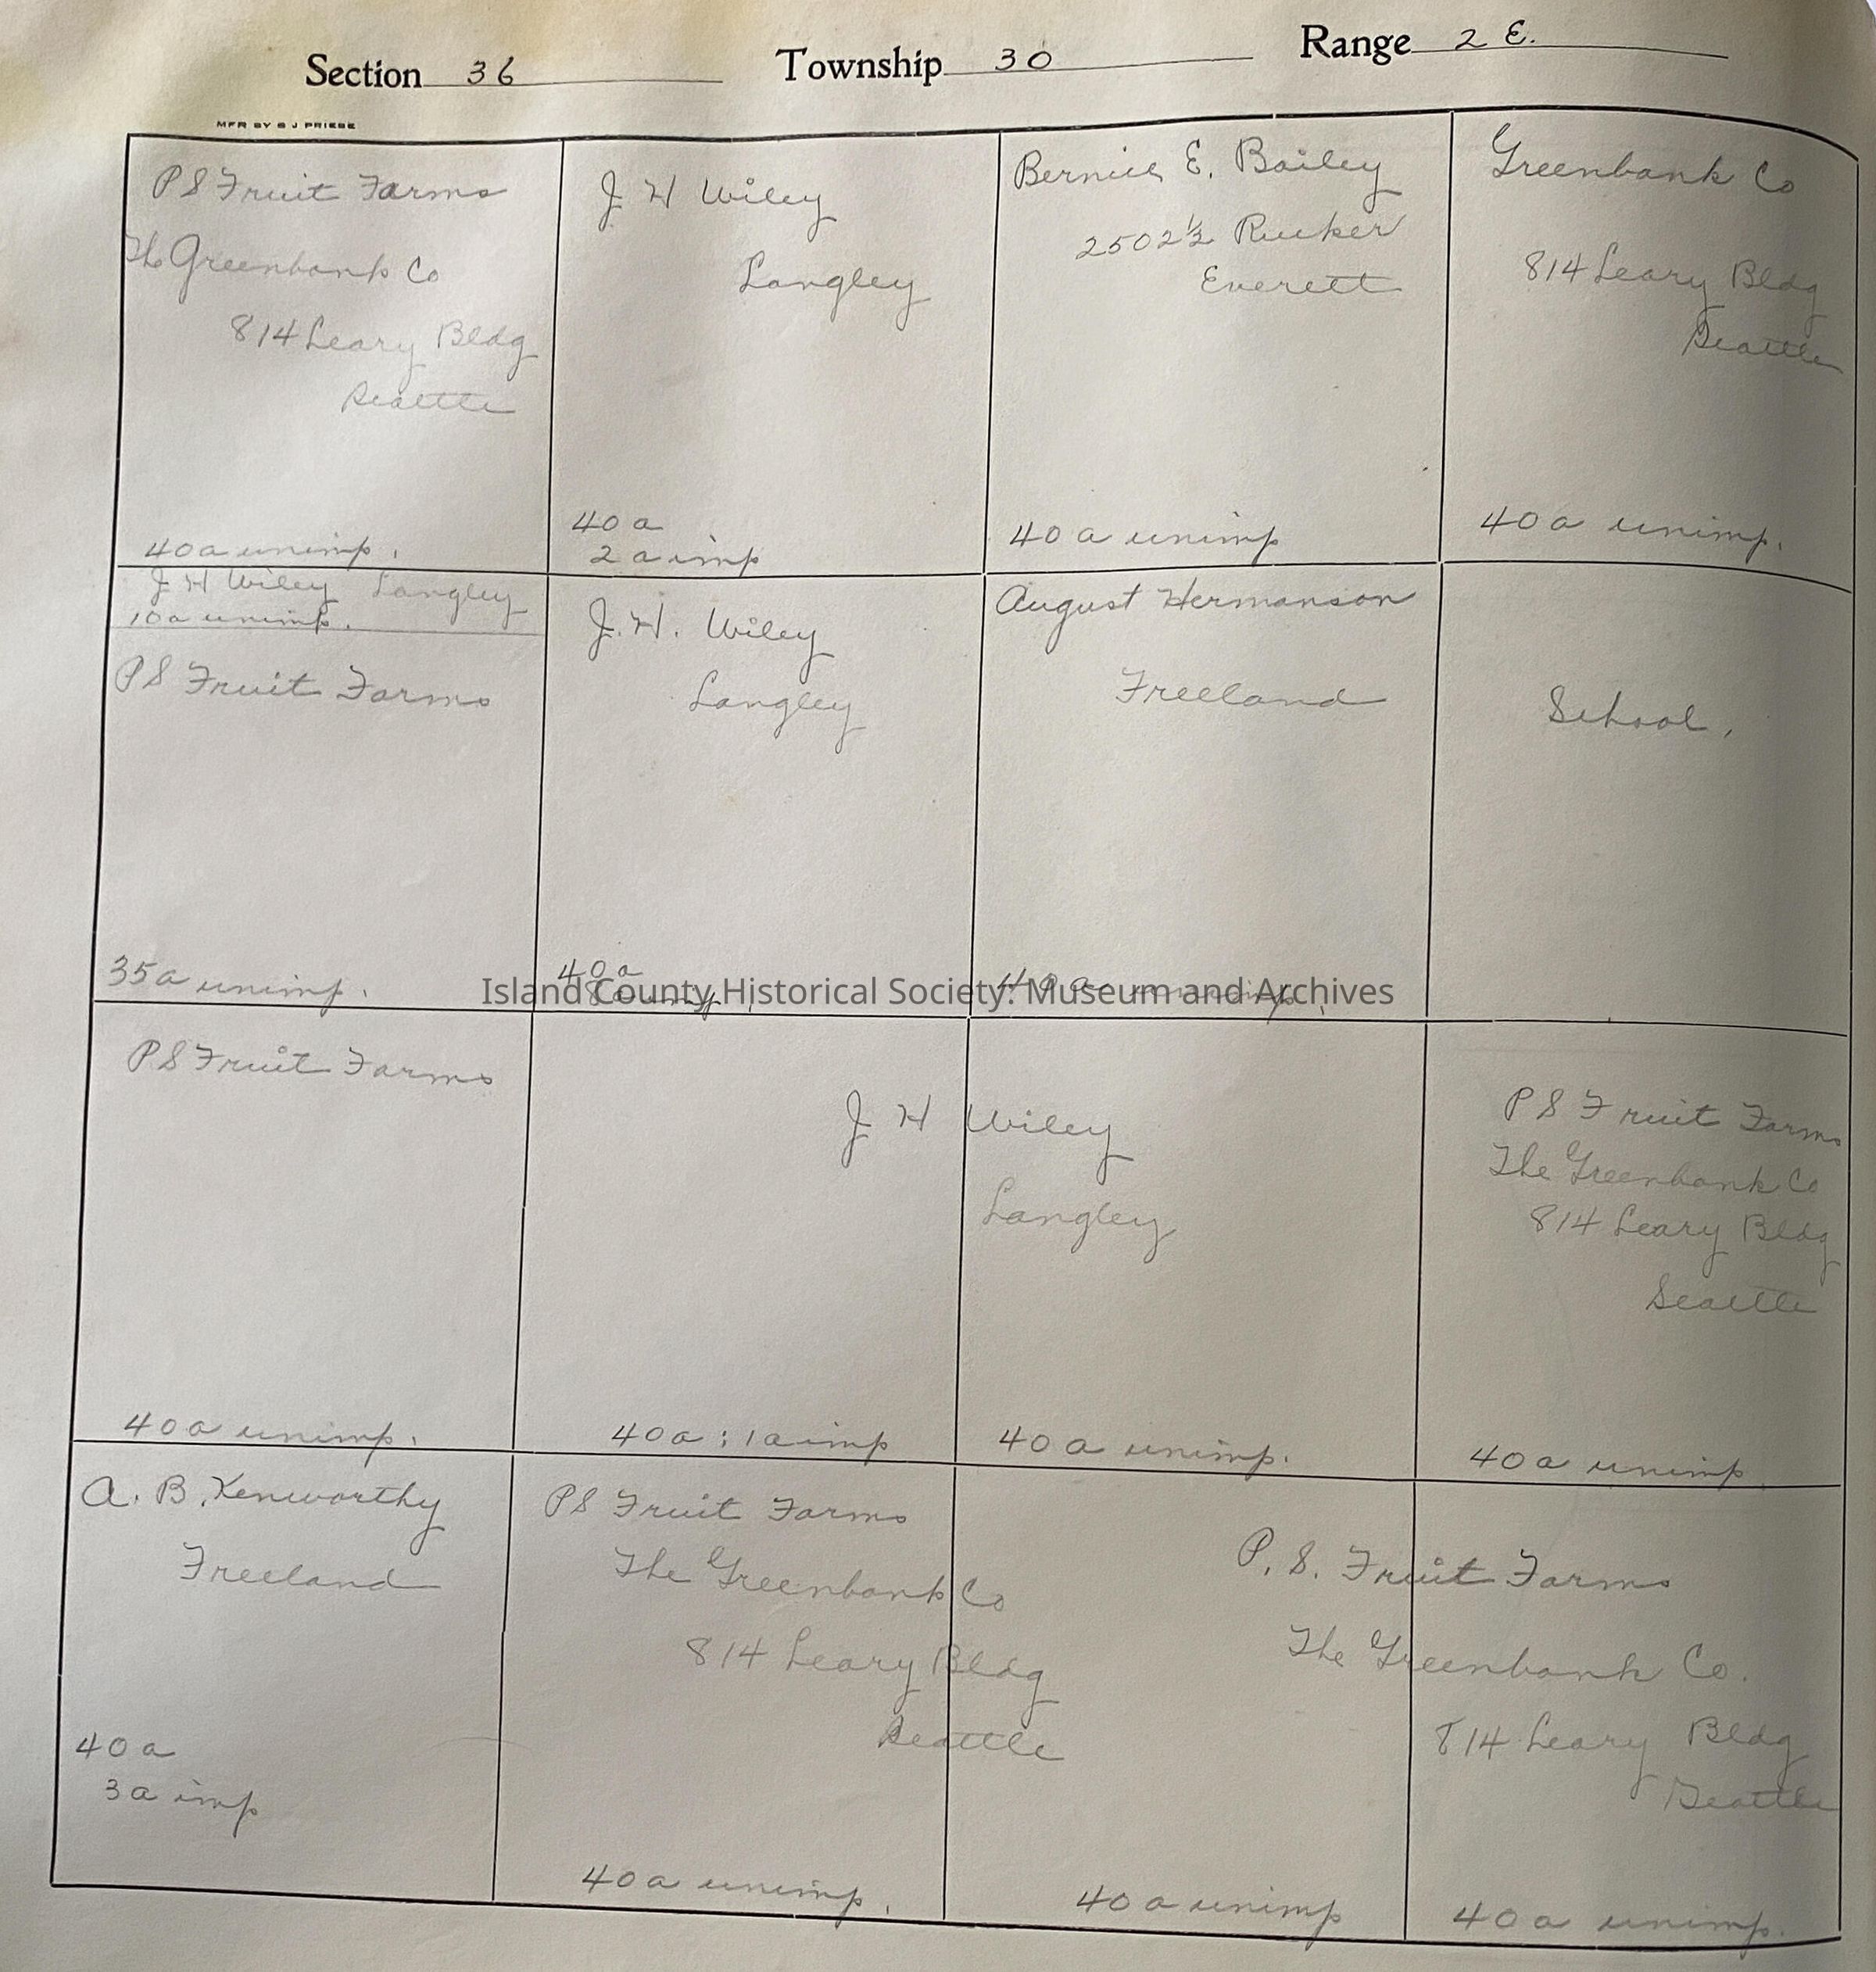 Section 36 Township 30 Range 2 E.
MFR BY S J PRIESE
PS Fruit Farms
The Greenbank Co
814 Leary Bldg
Seattle
40 a unimp.
J H Wiley
Langley
40 a
2 a imp
Bernice E. Bailey
2502½ Rucker
Everett
40 a unimp
Greenbank Co
814 Leary Bldg
Seattle
40 a unimp.
J H Wiley Langley
10 a unimp.
PS Fruit Farms
35 a unimp.
J. H. Wiley
Langley
40 a
8 a imp
August Hermanson
Freeland
40 a unimp.
School.
Island County Historical Society: Museum and Archives
PS Fruit Farms
40 a unimp.
J H Wiley
Langley
40 a : 1 a imp
40 a unimp.
P S Fruit Farms
The Greenbank Co
814 Leary Bldg
Seattle
40 a unimp.
A. B. Kenworthy
Freeland
40 a
3 a imp
PS Fruit Farms
The Greenbank Co
814 Leary Bldg
Seattle
40 a unimp.
P. S. Fruit Farms
The Greenbank Co.
814 Leary Bldg
Seattle
40 a unimp
40 a unimp.